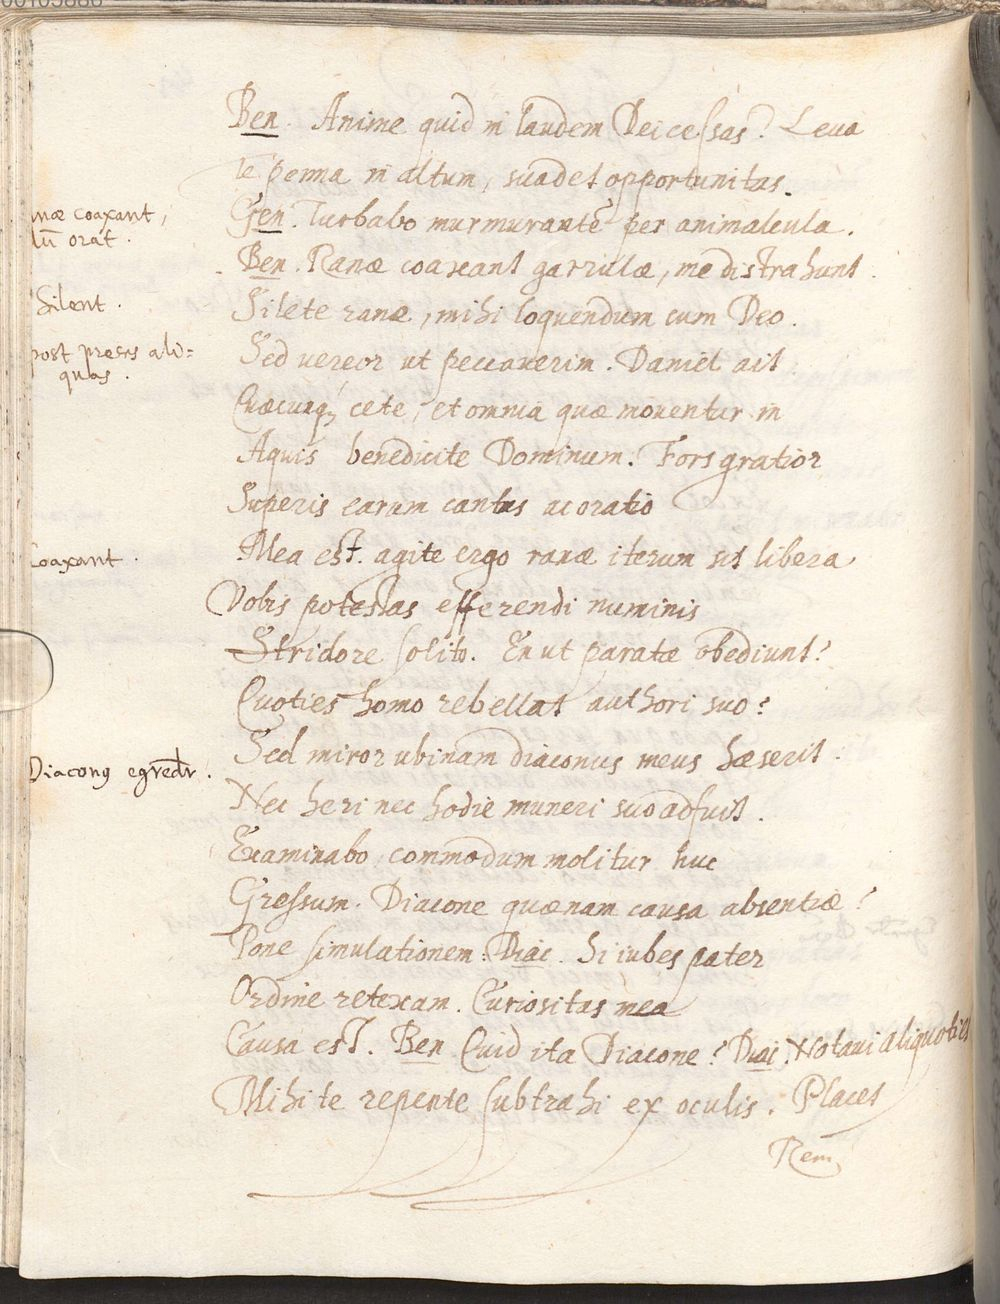 Ben. Anime quid in laudem Dei cessas? Leva
te penna in altum, suadet opportunitas.
næ coaxant,
dũ orat.
Gen. Turbabo murmurantẽ per animalcula.
Ben. Ranæ coaxant garrulæ, me distrahunt.
Silent.
Silete ranæ, mihi loquendum cum Deo.
post preces ali=
quas.
Sed vereor ut peccaverim. Daniel ait
Quæcunq; cete, et omnia quæ moventur in
Aquis benedicite Dominum. Fors gratior
Superis earum cantus ac oratio
Coaxant.
Mea est. agite ergo ranæ iterum sit libera
Vobis potestas efferendi numinis
Stridore solito. En ut paratæ obediunt!
Quoties homo rebellat authori suo?
Sed miror ubinam diaconus meus hæserit.
Diaconq egredr.
Nec heri nec hodie muneri suo adfuit.
Examinabo, commodum molitur huc
Gressum. Diacone quænam causa absentiæ?
Pone simulationem. Diac. Si iubes pater
Ordine retexam. Curiositas mea
Causa est. Ben Quid ita Diacone? Diac. Notavi aliquoties
Mihi te repente subtrahi ex oculis. Places
Rem